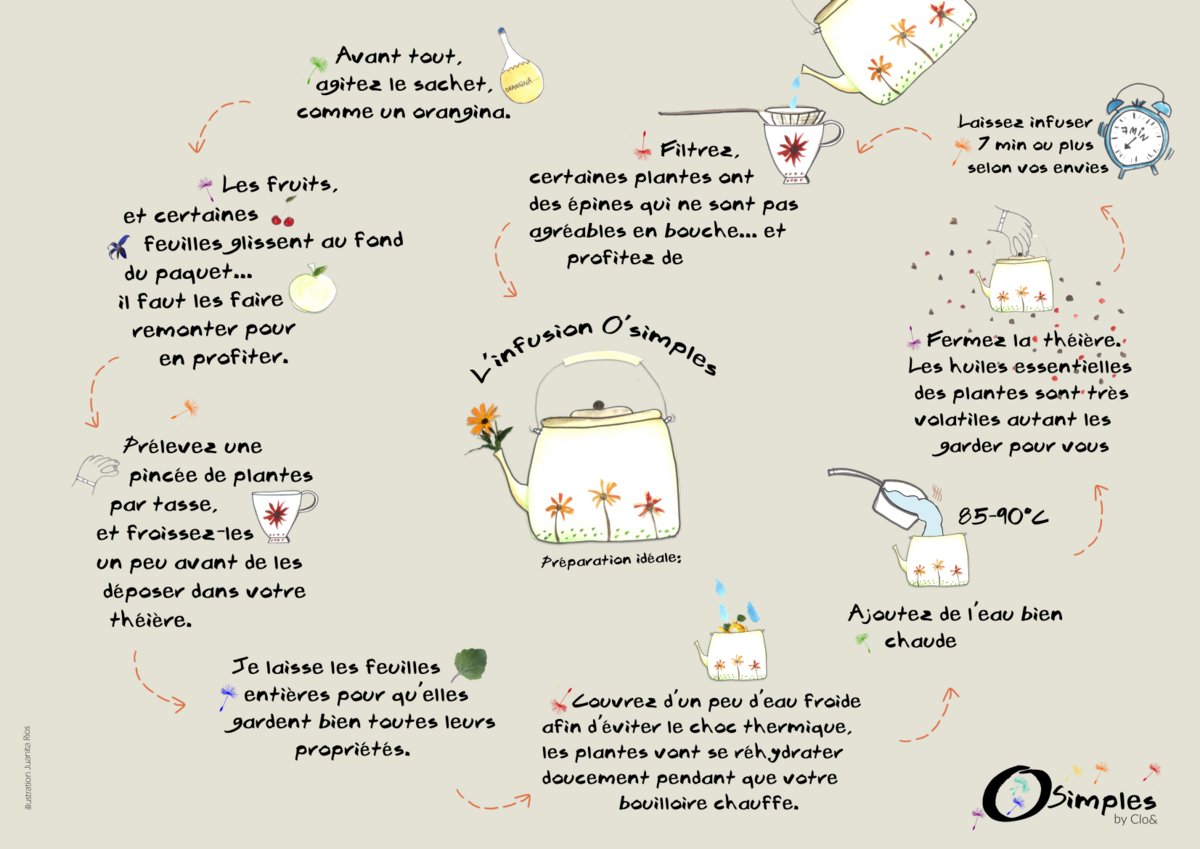 Avant tout,
agitez le sachet,
comme un orangina.
ORANGINA...
Les fruits,
et certaines
feuilles glissent au fond
du paquet...
il faut les faire
remonter pour
en profiter.
Prélevez une
pincée de plantes
par tasse,
et froissez-les
un peu avant de les
déposer dans votre
théière.
Je laisse les feuilles
entières pour qu'elles
gardent bien toutes leurs
propriétés.
Couvrez d'un peu d'eau froide
afin d'éviter le choc thermique,
les plantes vont se réhydrater
doucement pendant que votre
bouilloire chauffe.
Ajoutez de l'eau bien
chaude
85-90°C
Fermez la théière.
Les huiles essentielles
des plantes sont très
volatiles autant les
garder pour vous
Laissez infuser
7 min ou plus
selon vos envies
7 MIN
Filtrez,
certaines plantes ont
des épines qui ne sont pas
agréables en bouche... et
profitez de
L'infusion O'simples
Préparation idéale:
illustration Juanita Rios
O'Simples
by Clo&